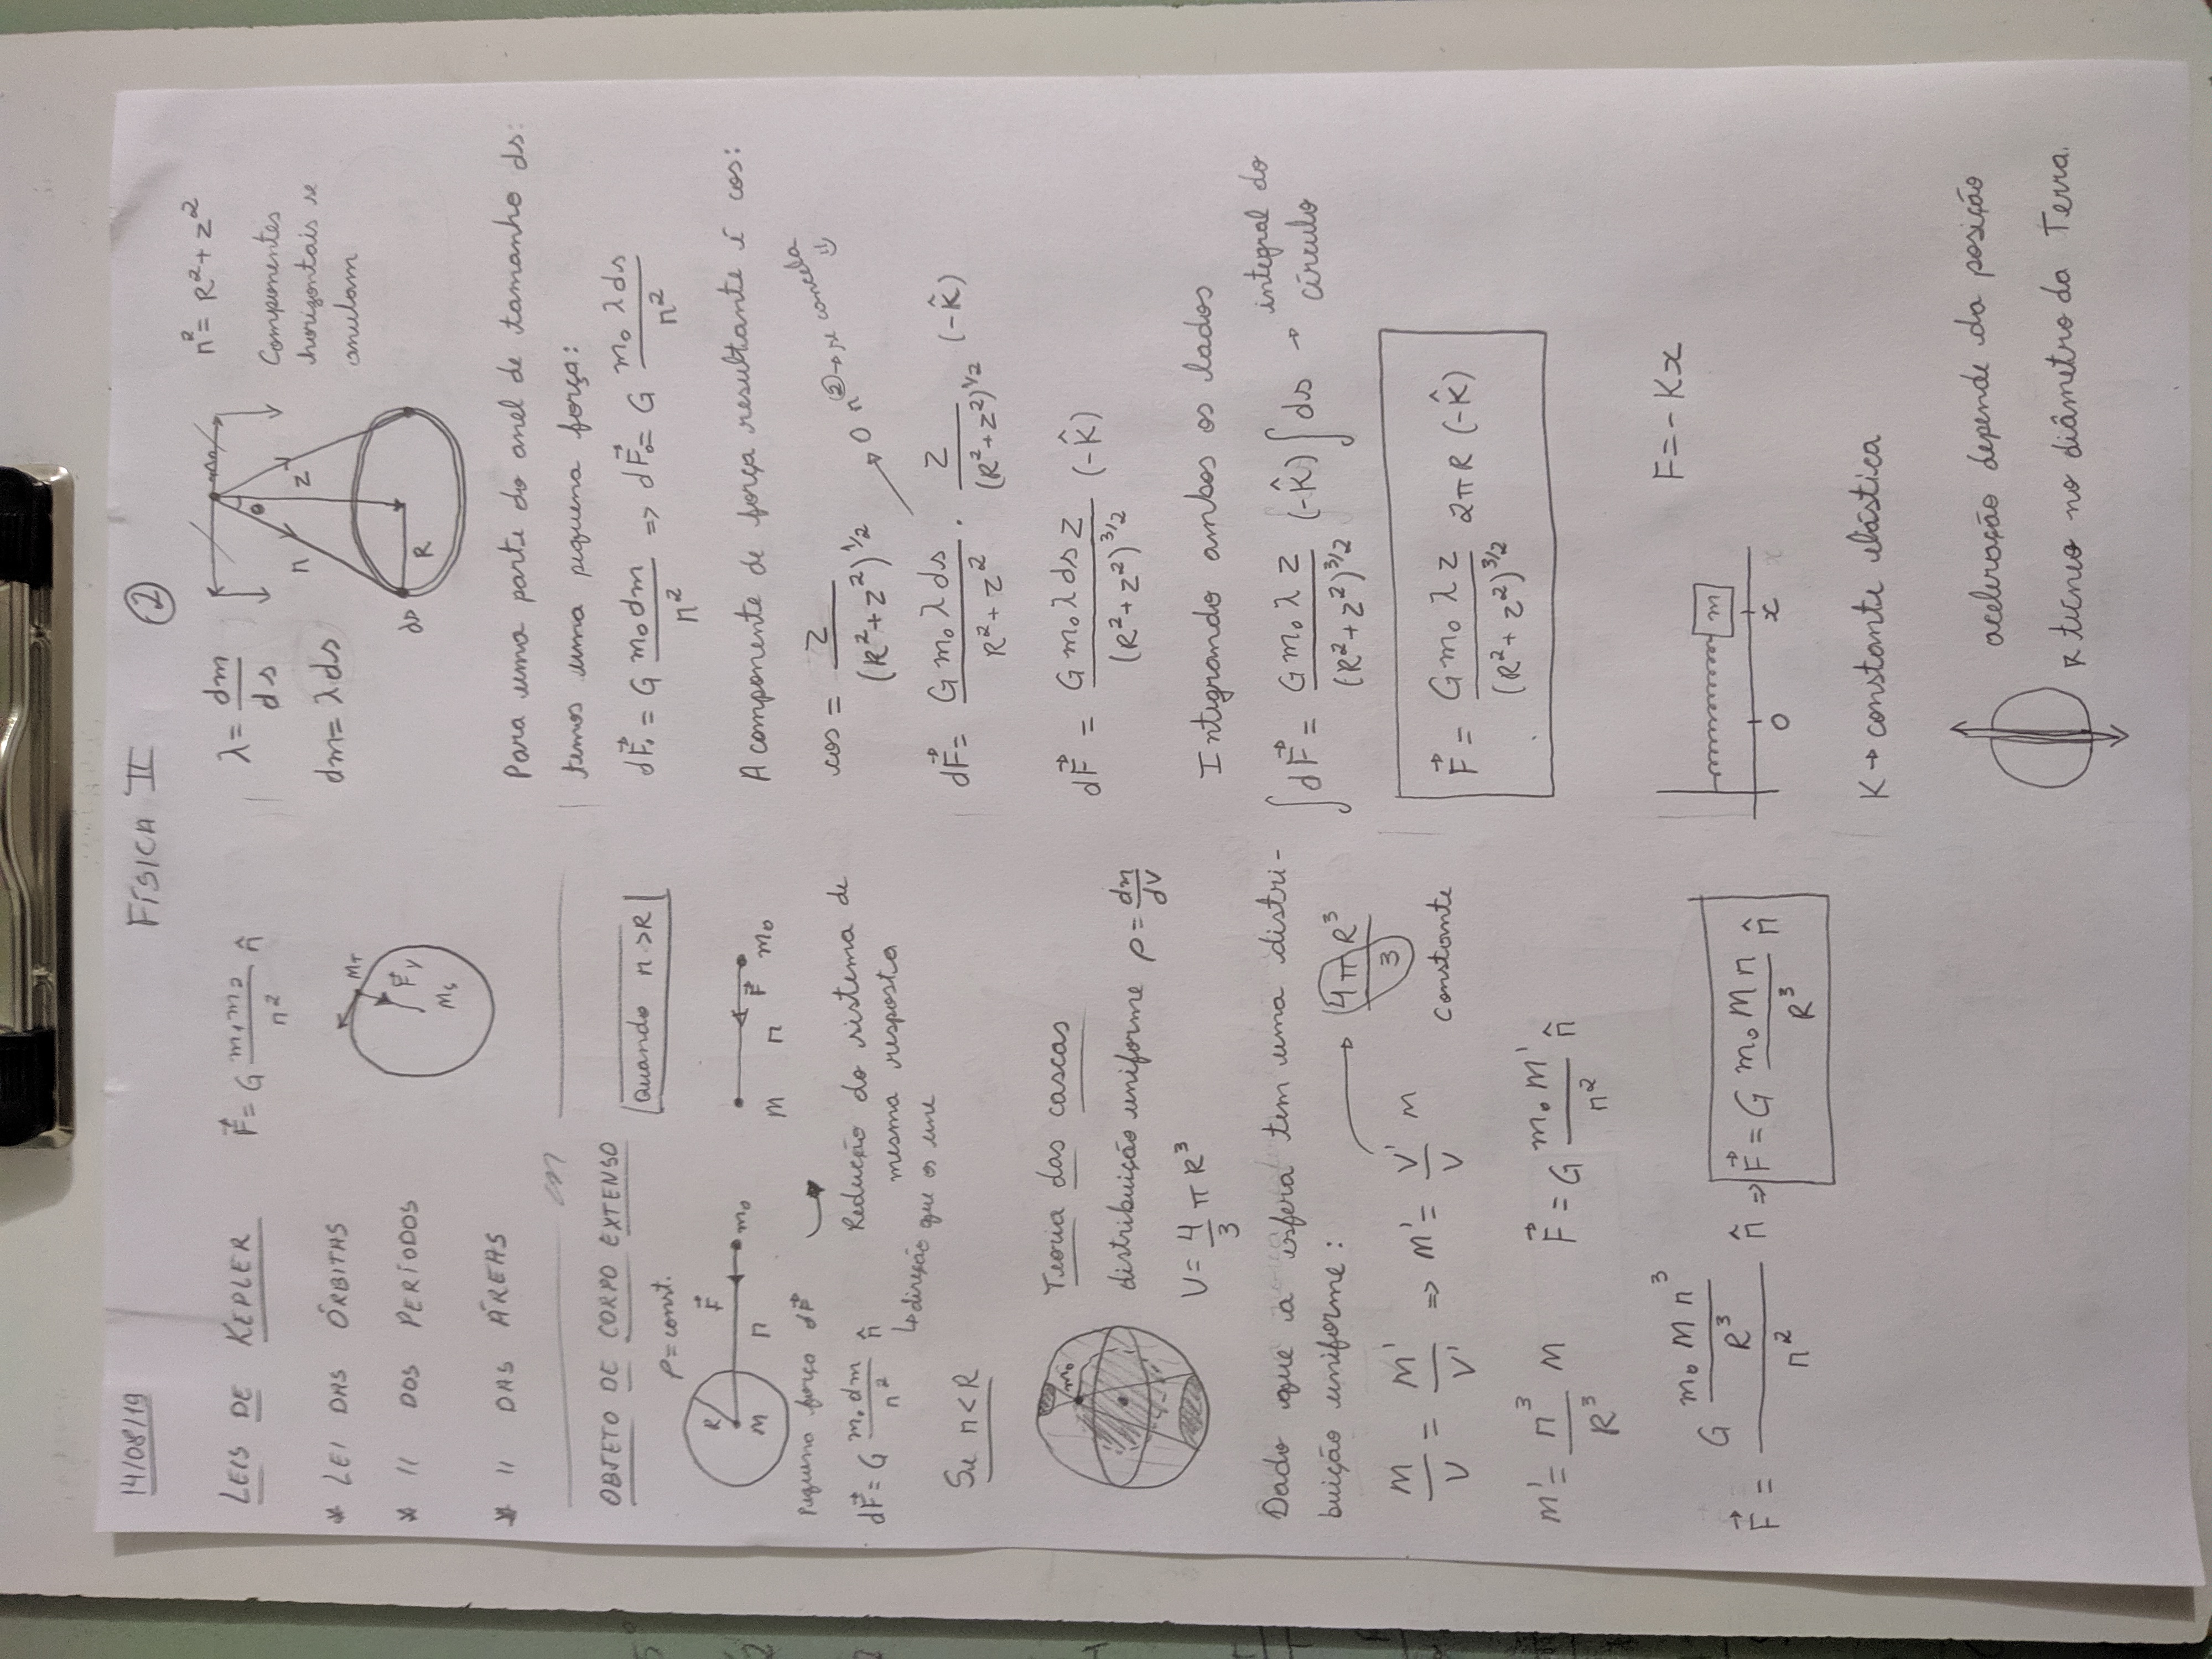 14/08/19
FÍSICA II
2
LEIS DE KEPLER
F⃗ = G m₁m₂/r² r̂
* LEI DAS ÓRBITAS
* " DOS PERÍODOS
* " DAS ÁREAS
M_T
F⃗
M_S
OBJETO DE CORPO EXTENSO
Quando r > R
ρ = const.
R
M
r
F⃗
m₀
M
r
F⃗
m₀
Pequena força dF⃗
dF⃗ = G m₀ dm/r² r̂
↳ direção que os une
Redução do sistema de
mesma resposta
Se r < R
m₀
Teoria das cascas
distribuição uniforme ρ = dm/dV
V = 4/3 π R³
Dado que a esfera tem uma distri-
buição uniforme:
M/V = M'/V' => M' = V'/V M
4πR³/3
constante
M' = r³/R³ M
F⃗ = G m₀ M'/r² r̂
F⃗ = (G m₀ M r³/R³)/r² r̂ => F⃗ = G m₀ M r/R³ r̂
λ = dm/ds
dm = λ ds
θ
r
z
ds
R
r² = R² + z²
Componentes
horizontais se
anulam
Para uma parte do anel de tamanho ds
temos uma pequena força:
dF⃗₀ = G m₀ dm/r² => dF⃗₀ = G m₀ λ ds/r²
A componente de força resultante é cos:
cos = z/(R² + z²)^1/2
O r² → se cancela
dF⃗ = G m₀ λ ds/(R² + z²) · z/(R² + z²)^1/2 (-k̂)
dF⃗ = G m₀ λ ds z/(R² + z²)^3/2 (-k̂)
Integrando ambos os lados
∫dF⃗ = G m₀ λ z/(R² + z²)^3/2 (-k̂) ∫ds → integral do
círculo
F⃗ = G m₀ λ z/(R² + z²)^3/2 2πR (-k̂)
F = -Kx
m
0
x
K → constante elástica
aceleração depende da posição
no diâmetro da Terra.